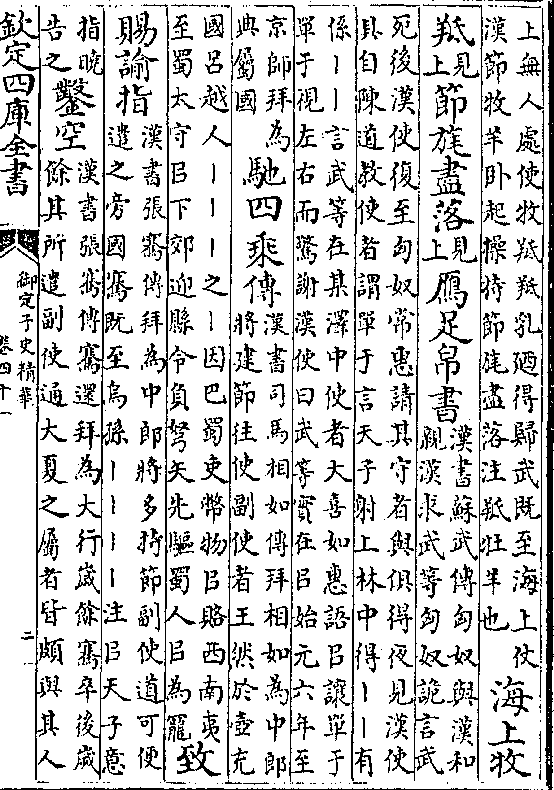 上無人處使牧羝羝乳廼得歸武既至海上仗
漢節牧羊卧起操持節旄盡落注羝牡羊也
海上牧
羝
見上
節旄盡落
見上
鴈足帛書
漢書蘇武傳匈奴與漢和
親漢求武等匈奴詭言武
死後漢使復至匈奴常惠請其守者與俱得夜見漢使
具自陳道教使者謂單于言天子射上林中得丨丨有
係丨丨言武等在某澤中使者大喜如惠語㠯讓單于
單于視左右而驚謝漢使曰武等實在㠯始元六年至
京師拜為
典屬國
馳四乘傳
漢書司馬相如傳拜相如為中郎
將建節往使副使者王然於壺充
國呂越人丨丨丨之丨因巴蜀吏幣物㠯賂西南夷
至蜀太守㠯下郊迎縣令負弩矢先驅蜀人㠯為寵
致
賜諭指
漢書張騫傳拜為中郎將多持節副使道可便
遣之旁國騫既至烏孫丨丨丨丨注㠯天子意
指曉
告之
鑿空
漢書張騫傳騫還拜為大行歲餘騫卒後歲
餘其所遣副使通大夏之屬者皆頗與其人
欽定四庫全書
御定子史精華
卷四十一
二